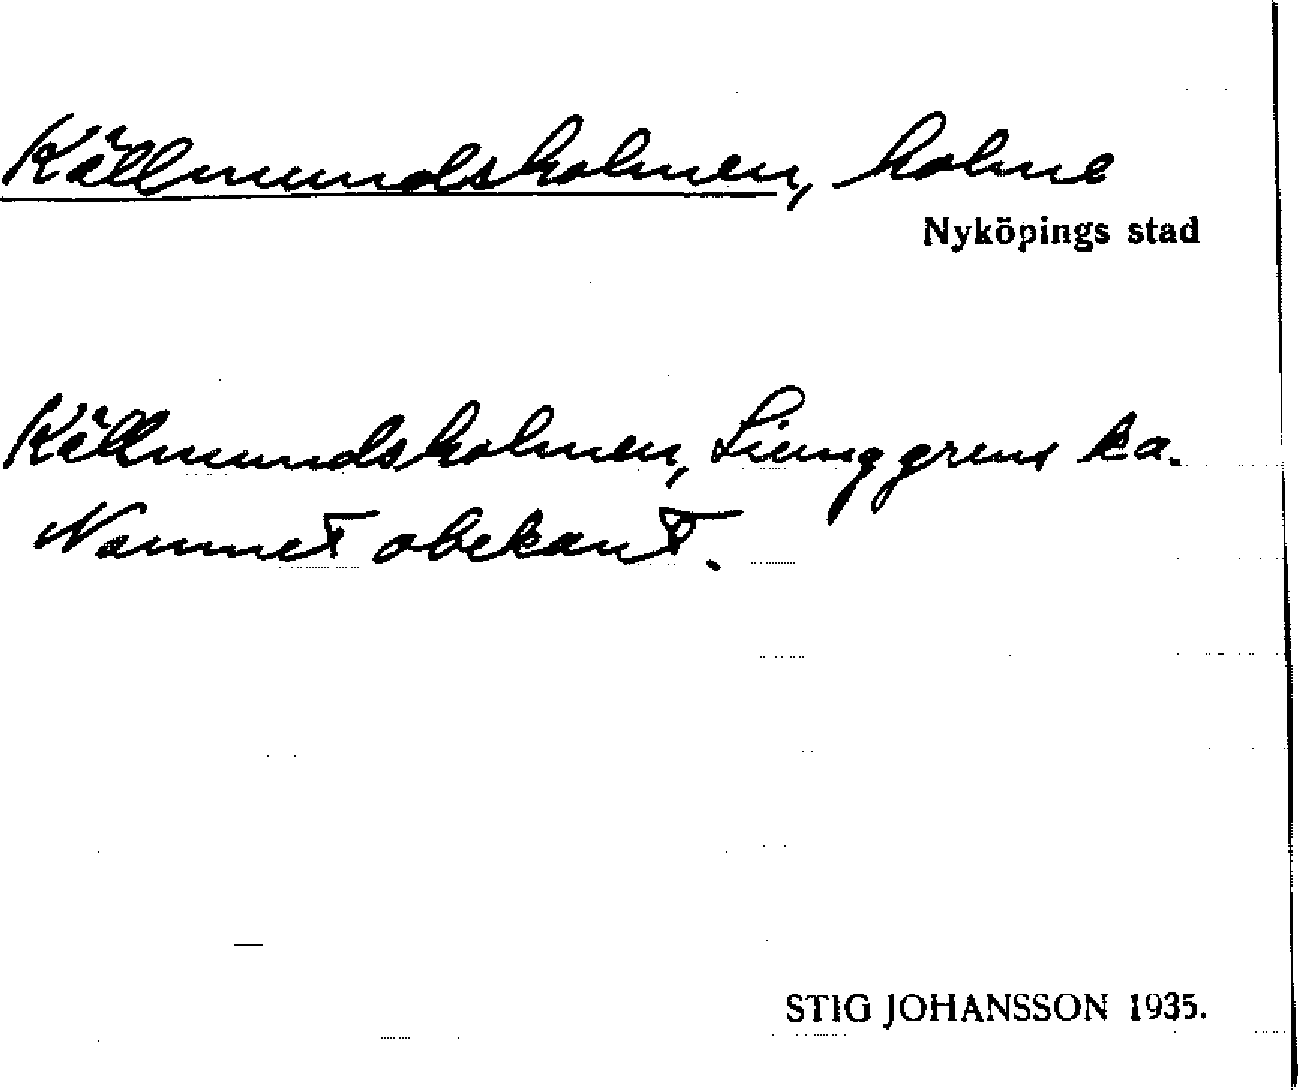 Källmundsholmen, holme
Nyköpings stad
Källmundsholmen, Liunggrens ka.
Namnet obekant.
STIG JOHANSSON 1935.